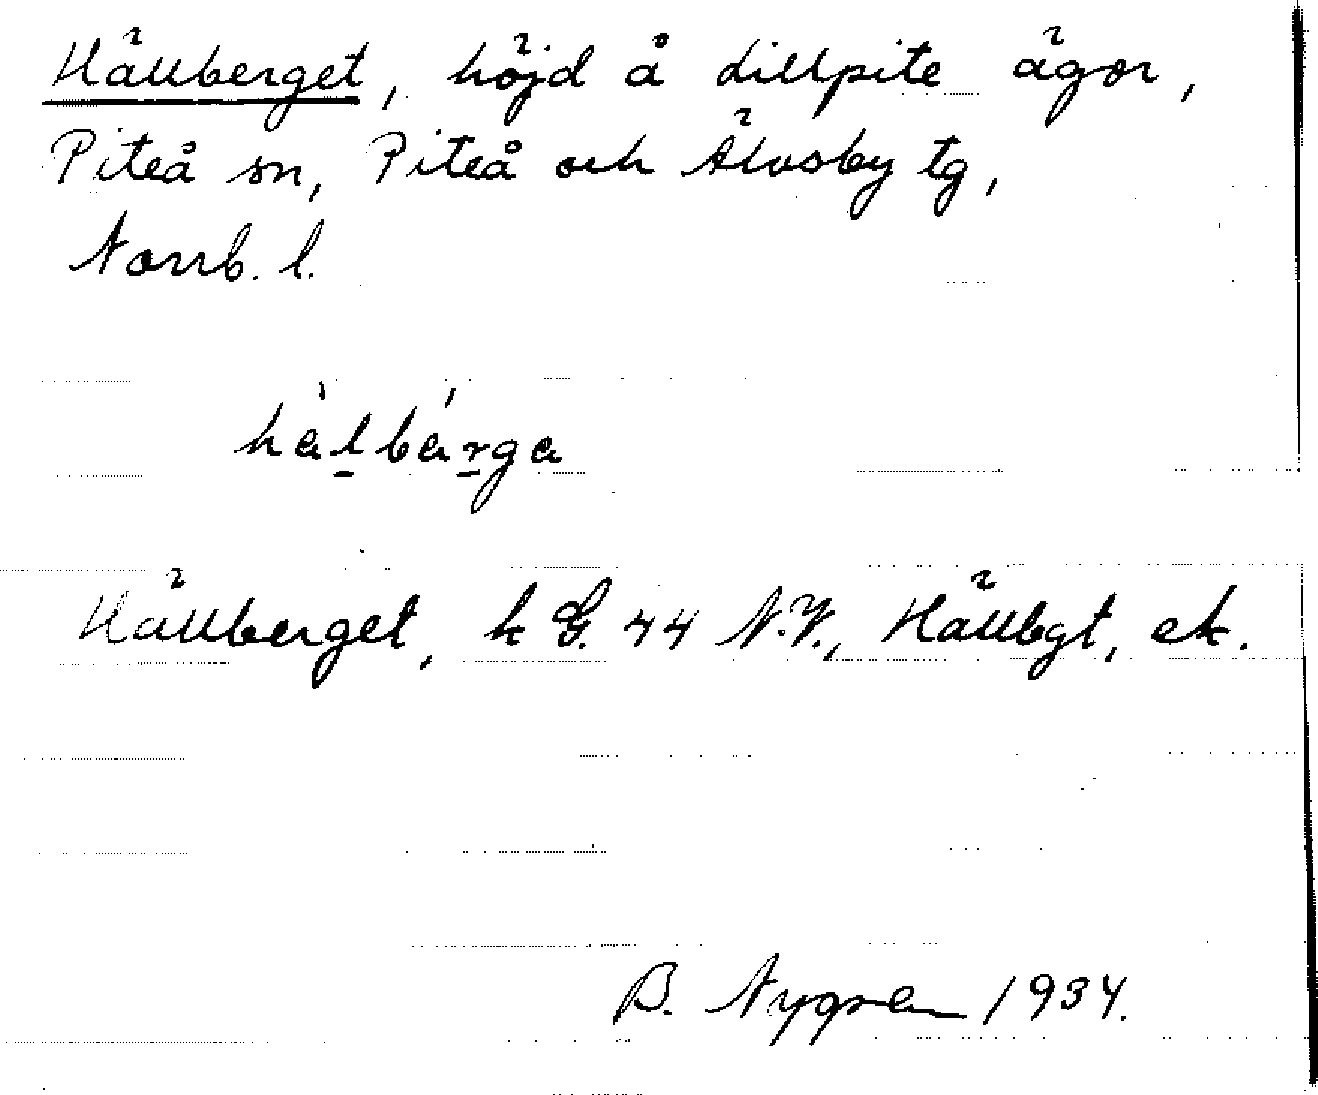 Hällberget, höjd å Lillpite ägor,
Piteå sn, Piteå och Älvsby tg,
Norrb. l.
hàl̠bár̠ga
Hällberget, k G. 44 N.V., Hällbgt, ek.
B. Nygren 1934.